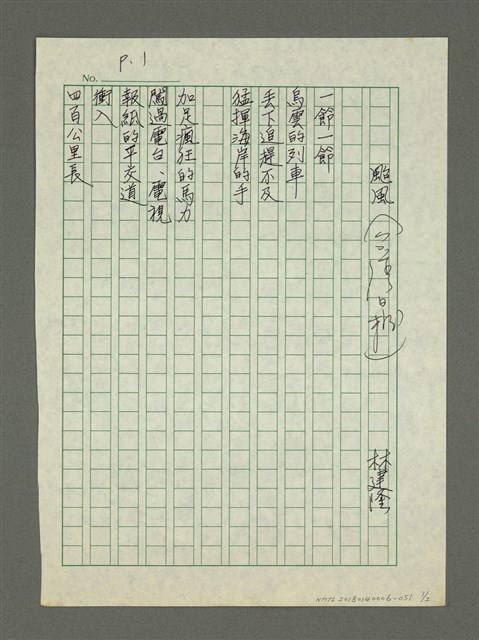 P.1
No.
颱風（台灣日報）
林建隆
一節一節
烏雲的列車
丟下追趕不及
猛揮海岸的手
加足瘋狂的馬力
闖過電台、電視
報紙的平交道
衝入
四百公里長
NMTL20180040006-051 1/2